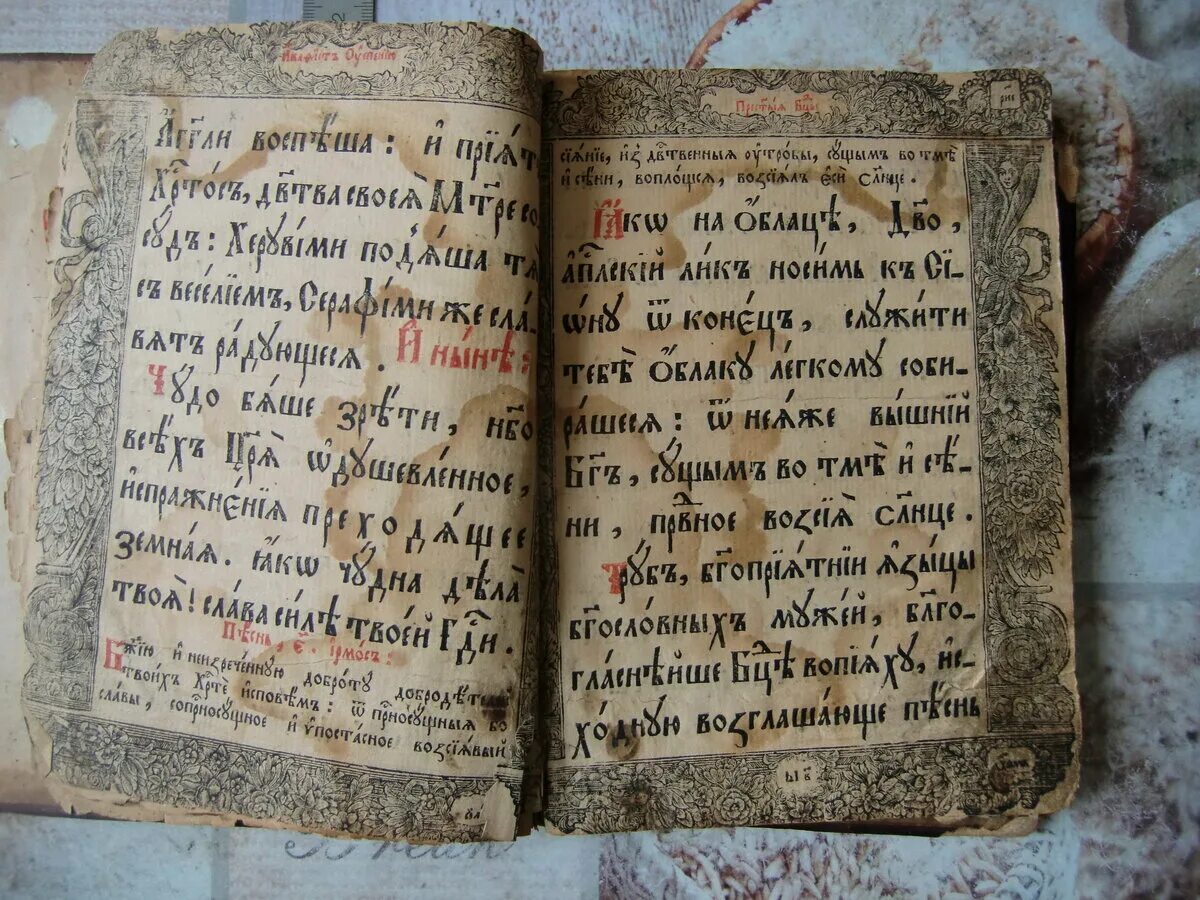 Акаѳїстъ Оу҆спенїю
А҆́гг҃ли воспѣ́ша : и҆ прїѧ́т
Хрⷭ҇то́съ, дв҃ства своеѧ̀ Мт҃ре со
сꙋ́дъ : Херꙋві́ми под̾ѧ́ша тѧ̀
съ весе́лїемъ, Серафі́ми же сла́-
вѧтъ ра́дꙋющесѧ . И҆ ны́нѣ :
Чꙋ́до бѧ́ше зрѣ́ти , нб҃о
всѣ́хъ Цр҃ѧ̀ ѡ҆дꙋшевле́нное ,
и҆спражнє́нїѧ преходѧ́щее
земна́ѧ . ꙗ҆́кѡ чꙋ́дна дѣла̀
твоѧ̀ ! сла́ва си́лѣ твое́й Гдⷭ҇и .
Пѣ́снь , є҃ . І҆рмо́съ :
Бж҃їю и҆ неизрече́ннꙋю добро́тꙋ добродѣ́телей
твои́хъ Хрⷭ҇тѐ и҆сповѣ́мъ : ѿ прⷭ҇носꙋ́щныѧ бо
сла́вы , соприсносꙋ́щное и҆ ѵ҆поста́сное возсїѧ́вый
Прест҃ы́ѧ Бцⷣы
рн҃і
сїѧ́нїе, и҆з̾ дв҃ственныѧ оу҆тро́бы, сꙋ́щымъ во тмѣ̀
и҆ сѣ́ни , вопло́щсѧ , возсїѧ́лъ є҆сѝ Сл҃нце .
Ꙗ҆́кѡ на ѻ҆́блацѣ , Дв҃о ,
а҆пⷭ҇лскїй ли́къ носи́мь къ Сїѡ-
ѡ́нꙋ ѿ коне́цъ , слꙋжи́ти
тебѣ̀ ѻ҆́блакꙋ ле́гкомꙋ соби-
ра́шесѧ : ѿ неѧ́же вы́шнїй
Бг҃ъ , сꙋ́щымъ во тмѣ̀ и҆ сѣ́-
ни , пра́вⷣное возсїѧ̀ Сл҃нце .
Трꙋ́бъ , бг҃опрїѧ́тнїи ꙗ҆зы́цы
бг҃осло́вныхъ мꙋже́й , бл҃го-
гла́снѣйше Бцⷣѣ вопїѧ́хꙋ , и҆с-
хо́днꙋю возглаша́юще пѣ́снь